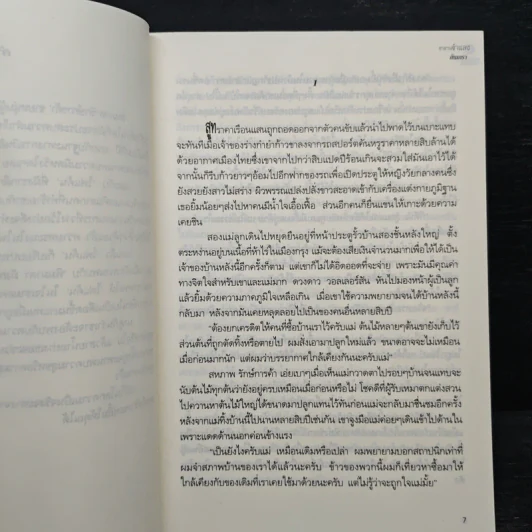 1
สูทราคาเรือนแสนถูกถอดออกจากตัวคนขับแล้วนำไปพาดไว้บนเบาะแทบ
จะทันทีเมื่อเจ้าของร่างกำยำก้าวขาลงจากรถสปอร์ตคันหรูราคาหลายสิบล้านได้
ด้วยอากาศเมืองไทยซึ่งเขาจากไปกว่าสิบแปดปีร้อนเกินจะสวมใส่มันเอาไว้ได้
จากนั้นก็รีบก้าวยาวๆอ้อมไปอีกฟากของรถเพื่อเปิดประตูให้หญิงวัยกลางคนซึ่ง
ยังสวยยังสาวไม่สร่าง ผิวพรรณเปล่งปลั่งขาวสะอาดเข้ากับเครื่องแต่งกายภูมิฐาน
เธอยิ้มน้อยๆส่งไปหาคนมีน้ำใจเอื้อเฟื้อ ส่วนอีกคนก็ยื่นแขนให้เกาะด้วยความ
เคยชิน
สองแม่ลูกเดินไปหยุดยืนอยู่ที่หน้าประตูรั้วบ้านสองชั้นหลังใหญ่ ตั้ง
ตระหง่านอยู่บนเนื้อที่ห้าไร่ในเมืองกรุง แม้จะต้องเสียเงินจำนวนมากเพื่อให้ได้เป็น
เจ้าของบ้านหลังนี้อีกครั้งก็ตาม แต่เขาก็ไม่ได้อิดออดที่จะจ่าย เพราะมันมีคุณค่า
ทางจิตใจสำหรับเขาและแม่มาก ดวงดาว วอลเลอร์สัน หันไปมองหน้าผู้เป็นลูก
แล้วยิ้มด้วยความภาคภูมิใจเหลือเกิน เมื่อเขาใช้ความพยายามจนได้บ้านหลังนี้
กลับมา หลังจากมันเคยหลุดลอยไปเป็นของคนอื่นหลายสิบปี
“ต้องยกเครดิตให้คนที่ซื้อบ้านเราไว้ครับแม่ ต้นไม้หลายๆต้นเขายังเก็บไว้
ส่วนต้นที่ถูกตัดทิ้งหรือตายไป ผมสั่งเอามาปลูกใหม่แล้ว ขนาดอาจจะไม่เหมือน
เมื่อก่อนมากนัก แต่ผมว่าบรรยากาศใกล้เคียงกันนะครับแม่”
สหภาพ รักษ์การค้า เอ่ยเบาๆเมื่อเห็นแม่กวาดตาไปรอบๆบ้านจนแทบจะ
นับต้นไม้ทุกต้นว่ายังอยู่ครบเหมือนเมื่อก่อนหรือไม่ โชคดีที่ผู้รับเหมาตกแต่งสวน
ไปควานหาต้นไม้ใหญ่ได้ขนาดมาปลูกแทนไว้ทันก่อนแม่จะกลับมาชื่นชมอีกครั้ง
หลังจากแม่ทิ้งบ้านนี้ไปนานหลายสิบปีเช่นกัน เขาจูงมือแม่ค่อยๆเดินเข้าไปด้านใน
เพราะแดดด้านนอกค่อนข้างแรง
“เป็นยังไงครับแม่ เหมือนเดิมหรือเปล่า ผมพยายามบอกสถาปนิกเท่าที่
ผมจำสภาพบ้านของเราได้แล้วนะครับ ข้าวของพวกนี้ผมก็เที่ยวหาซื้อมาให้
ใกล้เคียงกับของเดิมที่เราเคยใช้มาด้วยนะครับ แต่ไม่รู้ว่าจะถูกใจแม่มั้ย”
7